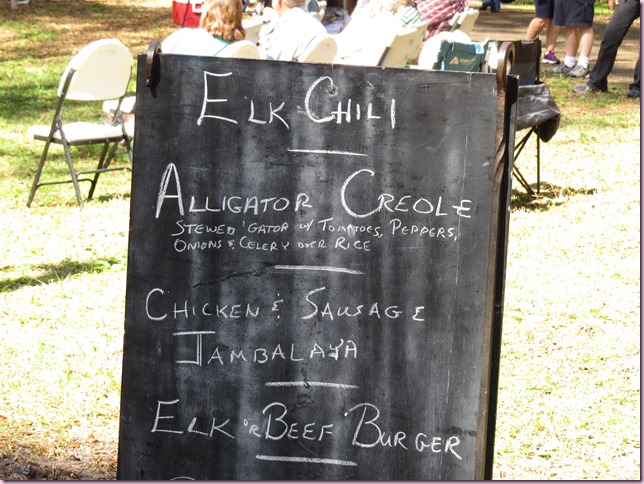 ELK CHILI
ALLIGATOR CREOLE
STEWED 'GATOR W/ TOMATOES, PEPPERS,
ONIONS & CELERY OVER RICE
CHICKEN & SAUSAGE
JAMBALAYA
ELK 'R BEEF BURGER